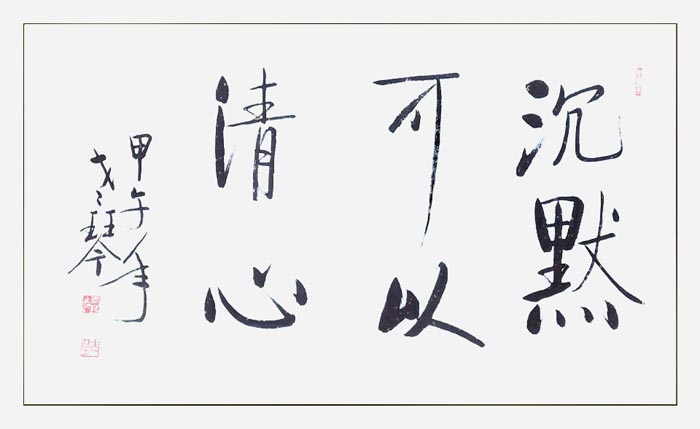 沉默
可以
清心
甲午年
戈琴